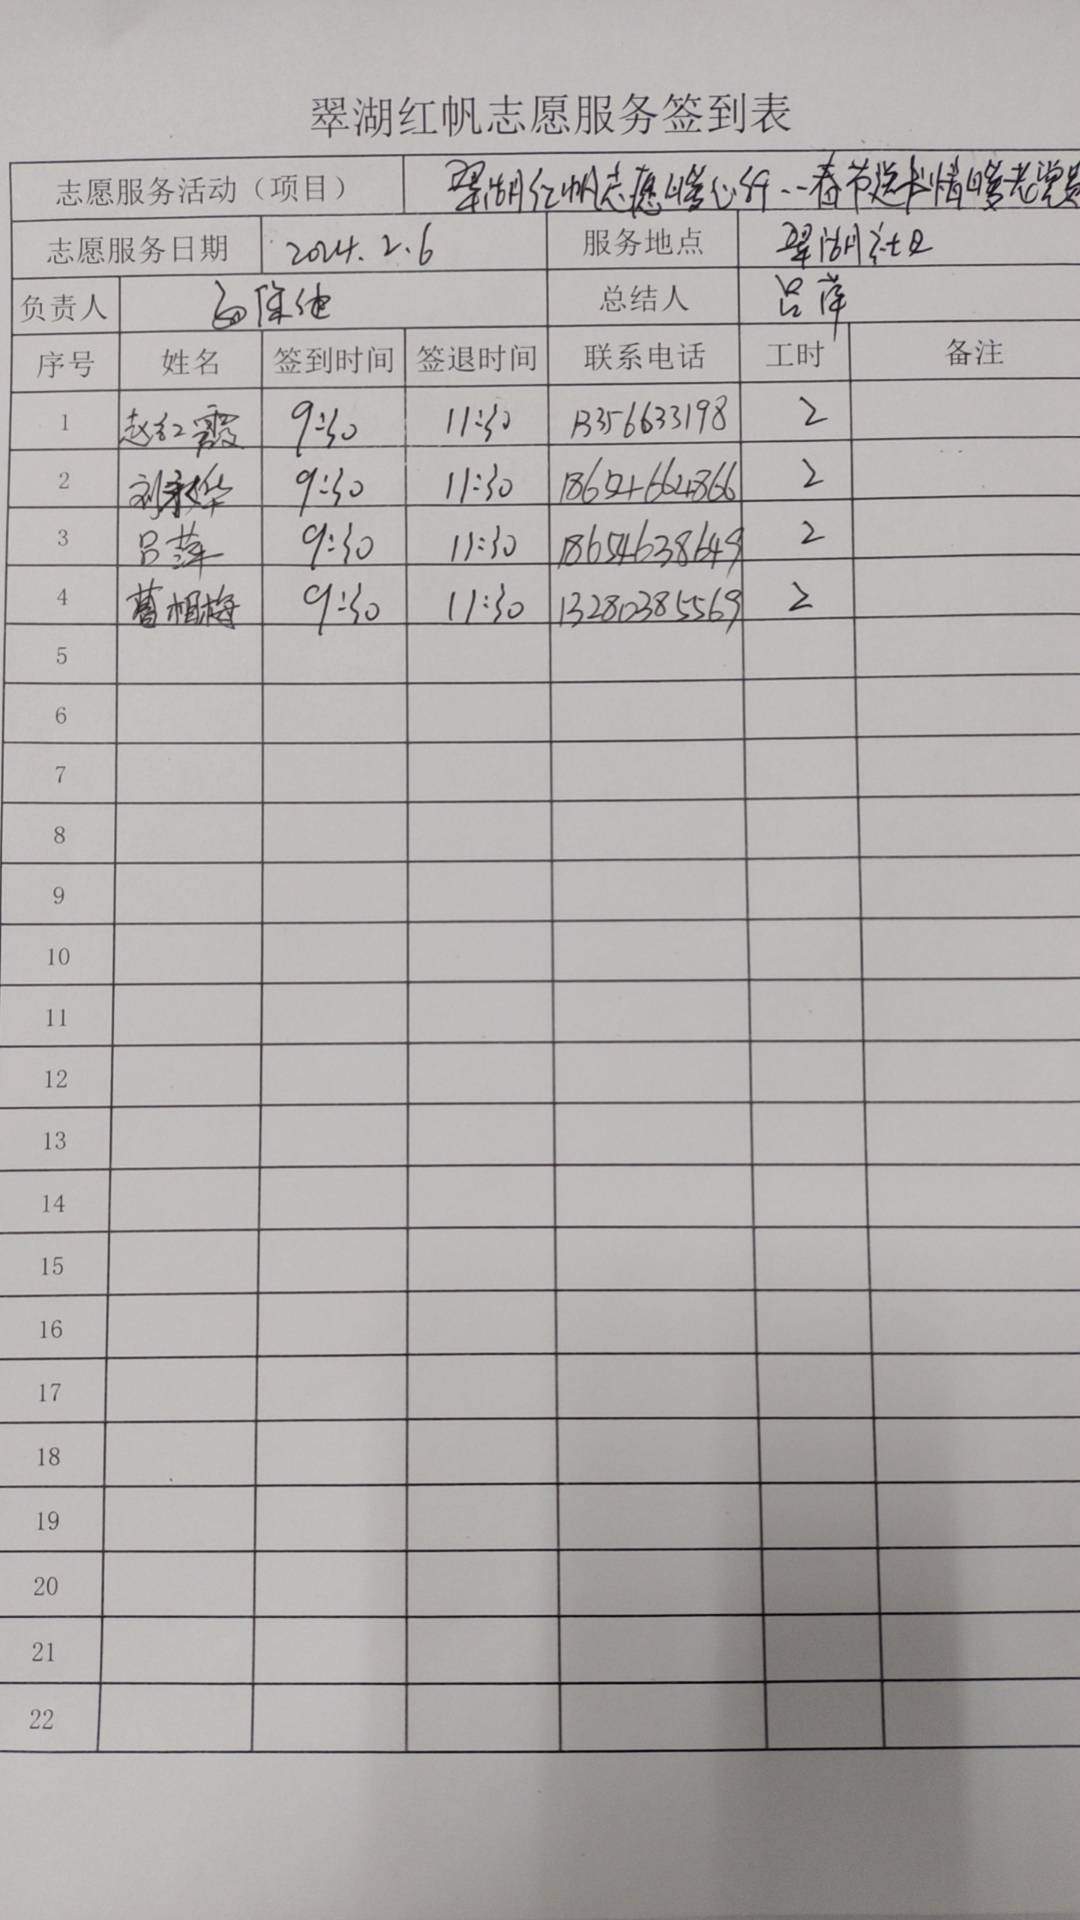 翠湖红帆志愿服务签到表
志愿服务活动（项目） 翠湖红帆志愿暖心行--春节送书情暖老党员
志愿服务日期 2024.2.6 服务地点 翠湖社区
负责人 总结人 吕萍
序号 姓名 签到时间 签退时间 联系电话 工时 备注
1 赵红霞 9:30 11:30 13356633198 2
2 刘永华 9:30 11:30 18654664866 2
3 吕萍 9:30 11:30 18654638649 2
4 葛相梅 9:30 11:30 13280385569 2
5
6
7
8
9
10
11
12
13
14
15
16
17
18
19
20
21
22